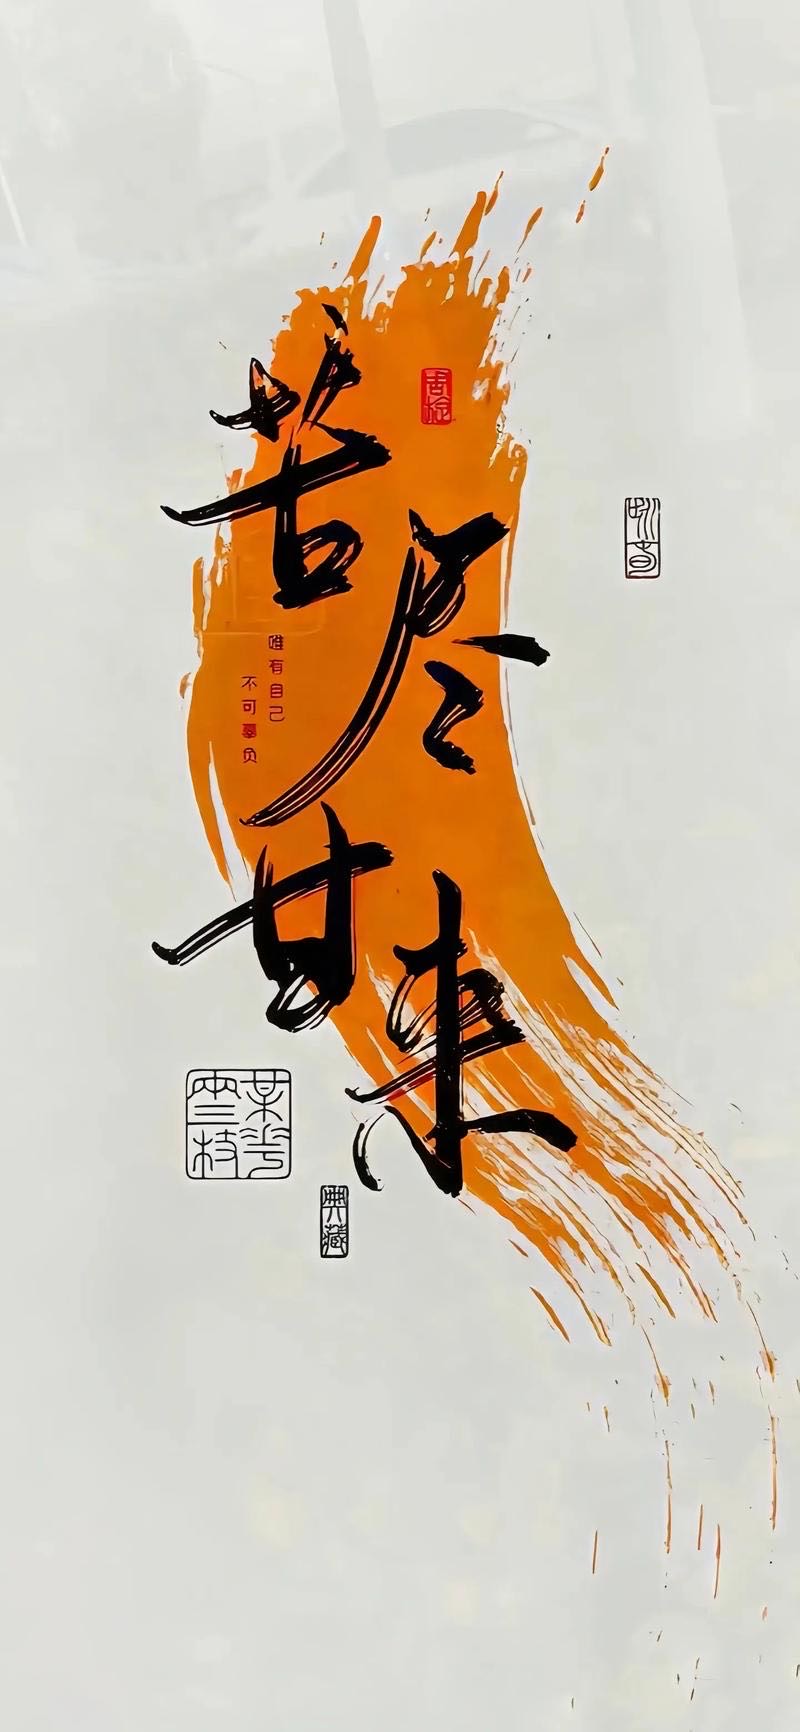 苦尽甘来
唯有自己
不可辜负
典藏